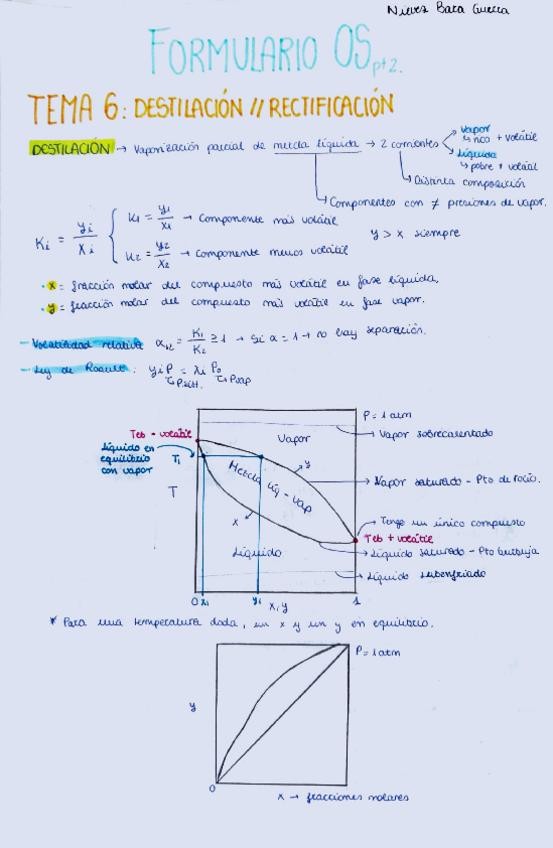 Nieves Baca Guerra
FORMULARIO OS pt2.
TEMA 6: DESTILACIÓN // RECTIFICACIÓN
DESTILACIÓN → Vaporización parcial de mezcla líquida → 2 corrientes
Vapor
↳ rico + volátil
Líquida
↳ pobre + volátil
↳ Distinta composición
↳ Componentes con ≠ presiones de vapor.
Ki = yi/xi
K1 = y1/x1 → Componente más volátil
K2 = y2/x2 → Componente menos volátil
y > x siempre
• x = fracción molar del compuesto más volátil en fase líquida,
• y = fracción molar del compuesto más volátil en fase vapor.
- Volatilidad relativa α12 = K1/K2 ≥ 1 → Si α = 1 → no hay separación.
- Ley de Raoult: yi P = xi Po
↳ Psist. ↳ Pvap
P = 1 atm
Vapor
Vapor sobrecalentado
Teb - volátil
Líquido en
equilibrio
con vapor
T1
T
Mezcla líq - vap
y
Vapor saturado - Pto de rocío.
x
Tengo un único compuesto
Teb + volátil
Líquido
Líquido saturado - Pto burbuja
Líquido subenfriado
0 x1 y1 1
x, y
* Para una temperatura dada, un x y un y en equilibrio.
P = 1 atm
y
0
x → fracciones molares